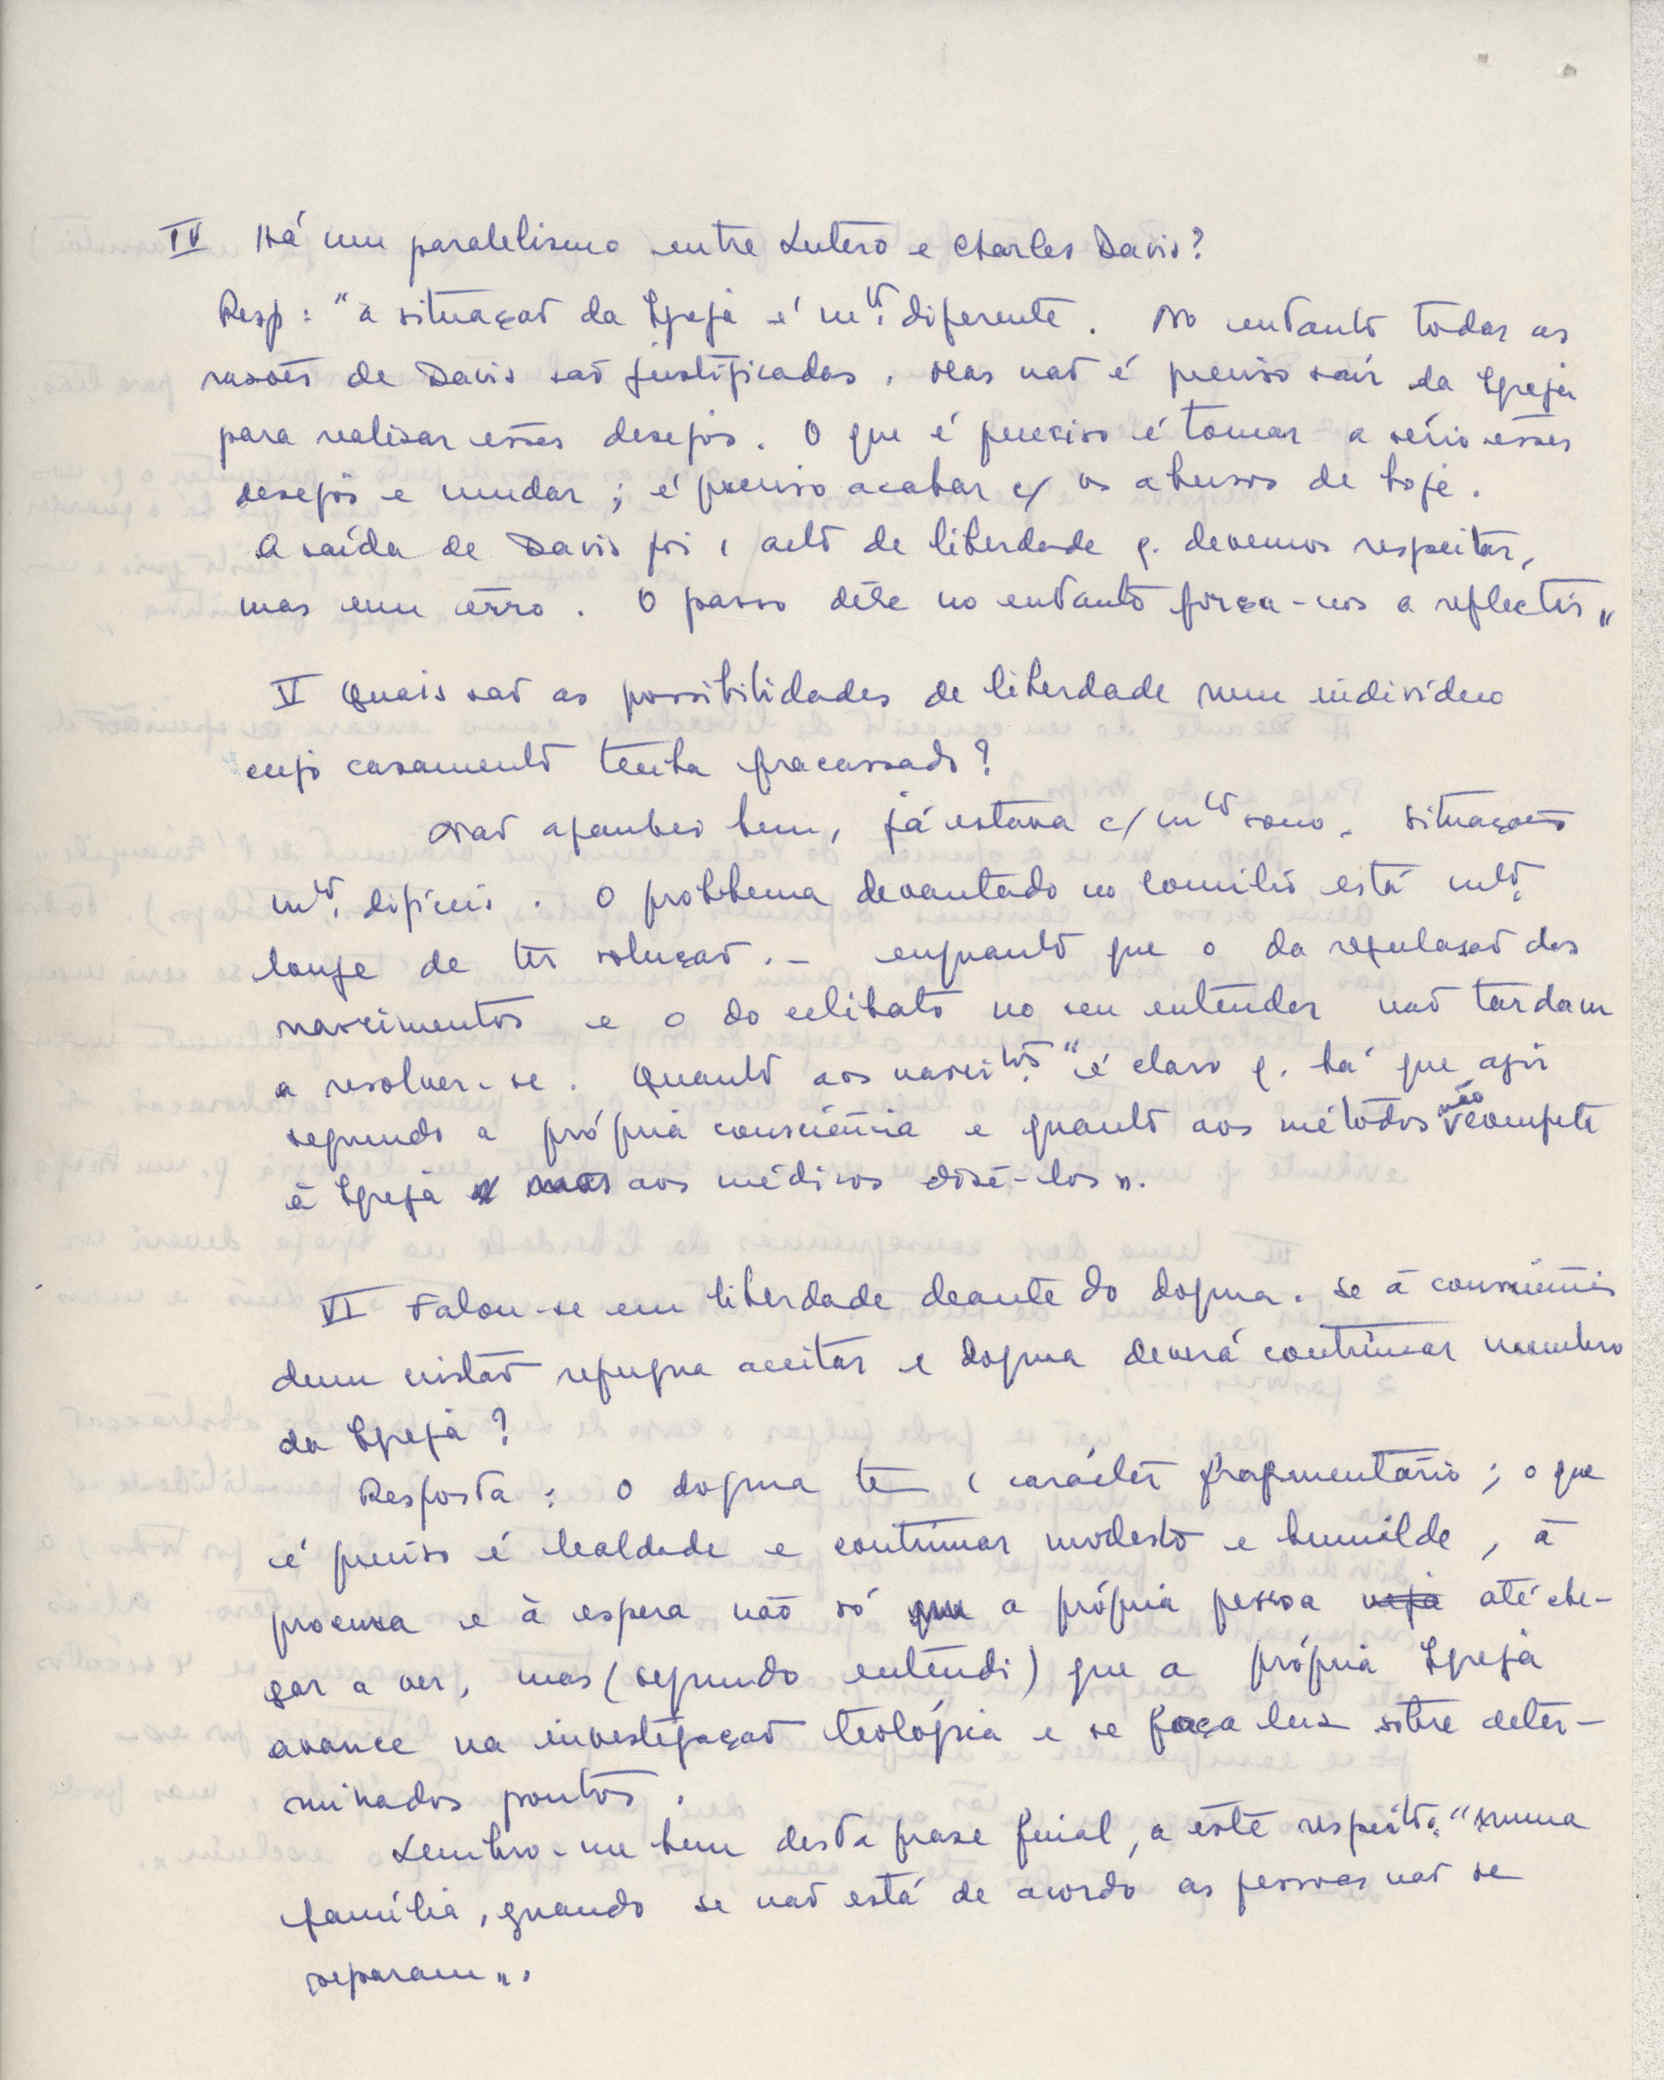 IV Há um paralelismo entre Lutero e Charles Davis?
Resp: "a situação da Igreja é mto. diferente. No entanto todas as
razões de Davis são justificadas. Mas não é preciso saír da Igreja
para realizar esses desejos. O que é preciso é tomar a sério esses
desejos e mudar; é preciso acabar c/ os abusos de hoje.
A saída de Davis foi 1 acto de liberdade q. devemos respeitar,
mas um êrro. O passo dêle no entanto força-nos a reflectir"
V Quais são as possibilidades de liberdade num indivíduo
cujo casamento tenha fracassado?
Não apanhei bem, já estava c/ mto sono. Situações
mto. difíceis. O problema levantado no Concílio está mto.
longe de ter solução. - enquanto que o da regulação dos
nascimentos e o do celibato no seu entender não tardam
a resolver-se. Quanto aos nascitos. "é claro q. há que agir
segundo a própria consciência e quanto aos métodos não compete
à Igreja mas aos médicos dizê-los".
VI Falou-se em liberdade deante do dogma. Se à consciência
dum cristão repugna aceitar o dogma deverá continuar membro
da Igreja?
Resposta: O dogma tem 1 carácter fragmentário; o que
é preciso é lealdade e continuar modesto e humilde, à
procura e à espera não só que a própria pessoa veja até che-
gar a ver, mas (segundo entendi) que a própria Igreja
avance na investigação teológica e se faça luz sôbre deter-
minados pontos.
Lembro-me bem desta frase final, a êste respeito. "numa
família, quando se não está de acordo as pessoas não se
separam".